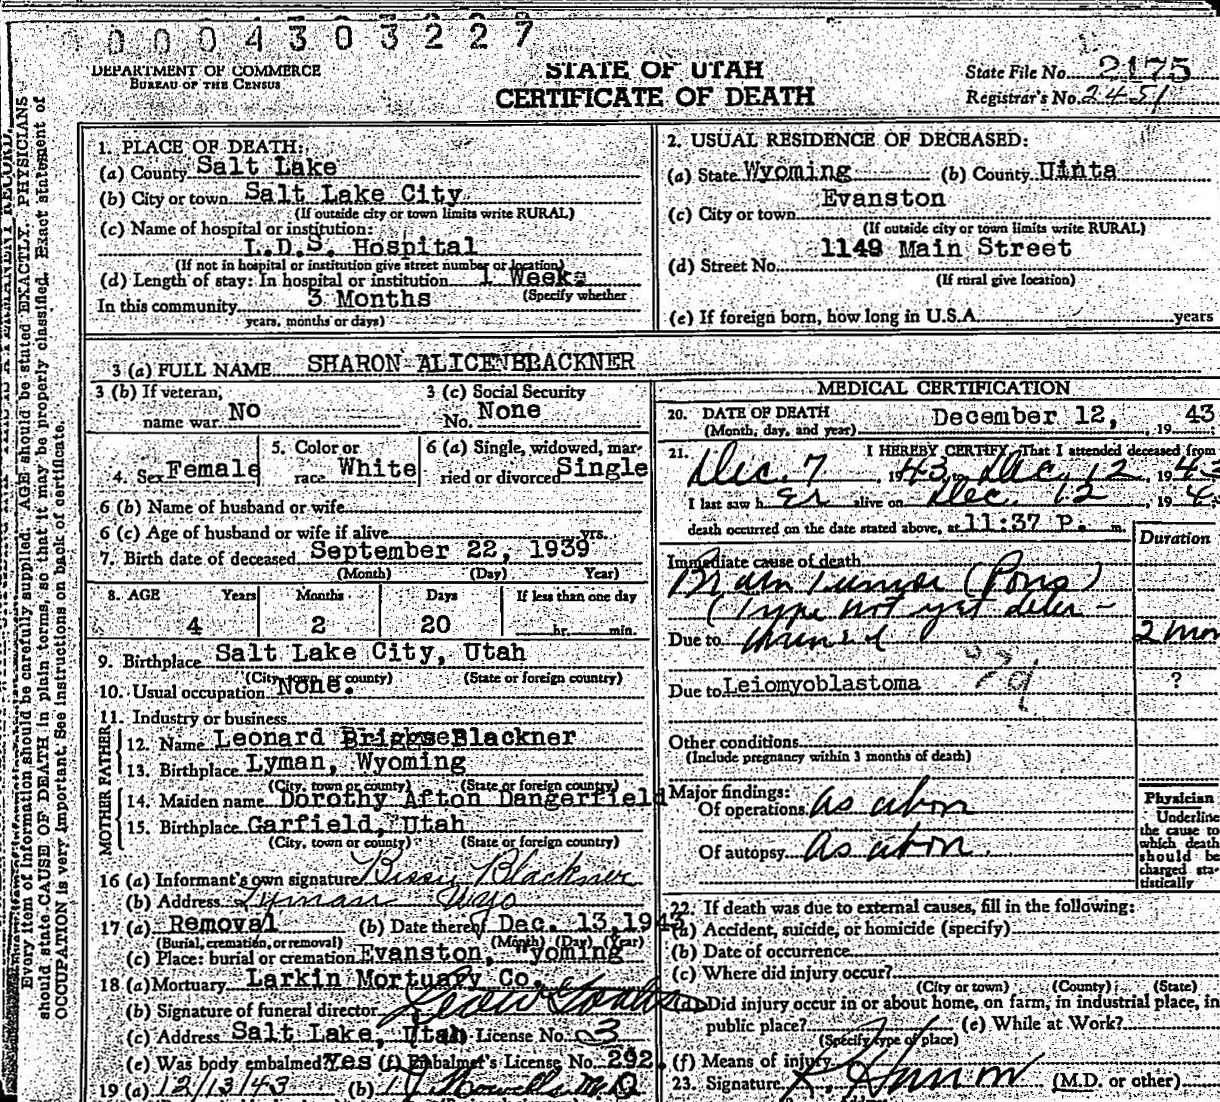 0 0 0 4 3 0 3 2 2 7
DEPARTMENT OF COMMERCE
BUREAU OF THE CENSUS
STATE OF UTAH
CERTIFICATE OF DEATH
State File No. 2175
Registrar's No. 2451
Every item of information should be carefully supplied. AGE should be stated EXACTLY. PHYSICIANS
should state CAUSE OF DEATH in plain terms, so that it may be properly classified. Exact statement of
OCCUPATION is very important. See instructions on back of certificate.
1. PLACE OF DEATH:
(a) County Salt Lake
(b) City or town Salt Lake City
(If outside city or town limits write RURAL)
(c) Name of hospital or institution:
L.D.S. Hospital
(If not in hospital or institution give street number or location)
(d) Length of stay: In hospital or institution 1 Weeks
(Specify whether
In this community 3 Months
years, months or days)
2. USUAL RESIDENCE OF DECEASED:
(a) State Wyoming (b) County Uinta
(c) City or town Evanston
(If outside city or town limits write RURAL)
(d) Street No. 1149 Main Street
(If rural give location)
(e) If foreign born, how long in U.S.A. years
3 (a) FULL NAME SHARON ALICE BLACKNER
3 (b) If veteran,
name war No
3 (c) Social Security
No. None
4. Sex Female
5. Color or
race White
6 (a) Single, widowed, mar-
ried or divorced Single
6 (b) Name of husband or wife
6 (c) Age of husband or wife if alive yrs.
7. Birth date of deceased September 22, 1939
(Month) (Day) Year)
8. AGE Years Months Days If less than one day
4 2 20 hr. min.
9. Birthplace Salt Lake City, Utah
(City, town or county) (State or foreign country)
10. Usual occupation None.
11. Industry or business
FATHER
12. Name Leonard Briggs Blackner
13. Birthplace Lyman, Wyoming
(City, town or county) (State or foreign country)
MOTHER
14. Maiden name Dorothy Afton Dangerfield
15. Birthplace Garfield, Utah
(City, town or county) (State or foreign country)
16 (a) Informant's own signature Bissie Blackner
(b) Address Lyman Wyo
17 (a) Removal (b) Date thereof Dec. 13, 1943
(Burial, cremation, or removal) (Month) (Day) (Year)
(c) Place: burial or cremation Evanston, Wyoming
18 (a) Mortuary Larkin Mortuary Co.
(b) Signature of funeral director
(c) Address Salt Lake, Utah License No. 3
(e) Was body embalmed? Yes (f) Embalmer's License No. 292
19 (a) 12/13/43 (b) M.D
MEDICAL CERTIFICATION
20. DATE OF DEATH December 12, 19 43
(Month, day, and year)
21. I HEREBY CERTIFY, That I attended deceased from
Dec. 7 1943, to Dec. 12, 1943
I last saw h er alive on Dec. 12, 194
death occurred on the date stated above, at 11:37 P. m.
Duration
Immediate cause of death
Brain Tumor (Pons)
(Type not yet deter-
Due to mined 2 mon
Due to Leiomyoblastoma ?
Other conditions
(Include pregnancy within 3 months of death)
Major findings:
Of operations As above
Of autopsy As above.
Physician
Underline
the cause to
which death
should be
charged sta-
tistically
22. If death was due to external causes, fill in the following:
(a) Accident, suicide, or homicide (specify)
(b) Date of occurrence
(c) Where did injury occur?
(City or town) (County) (State)
(d) Did injury occur in or about home, on farm, in industrial place, in
public place? (e) While at Work?
(Specify type of place)
(f) Means of injury
23. Signature (M.D. or other)